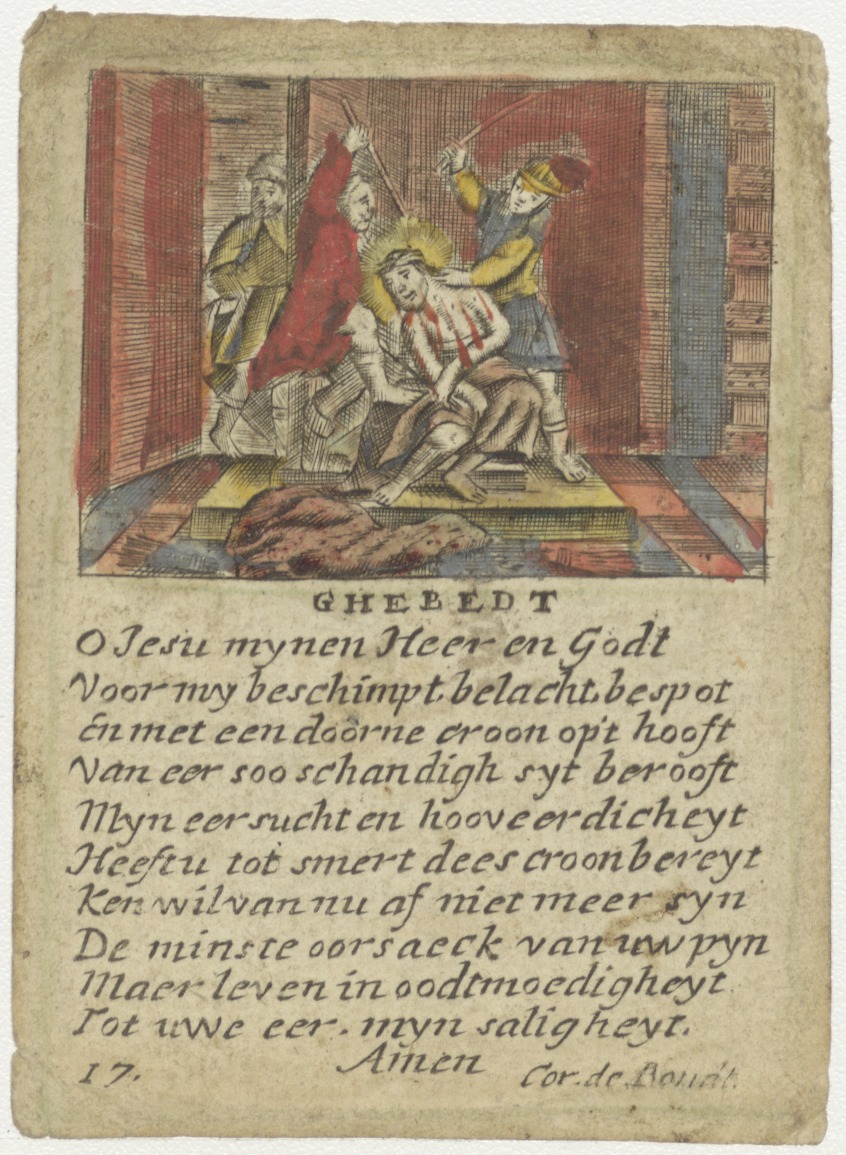 GHEBEDT
O Jesu mynen Heer en Godt
Voor my beschimpt, belacht, bespot
En met een doorne croon op't hooft
Van eer soo schandigh syt berooft
Myn eersucht en hooveerdicheyt
Heeft u tot smert dees croon bereyt
Ken wil van nu af niet meer syn
De minste oorsaeck van uw pyn
Maer leven in oodtmoedigheyt
Tot uwe eer. myn saligheyt.
Amen
17. Cor. de Boudt.